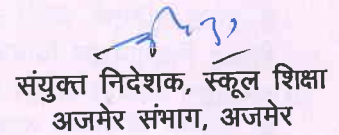 संयुक्त निदेशक, स्कूल शिक्षा
अजमेर संभाग, अजमेर